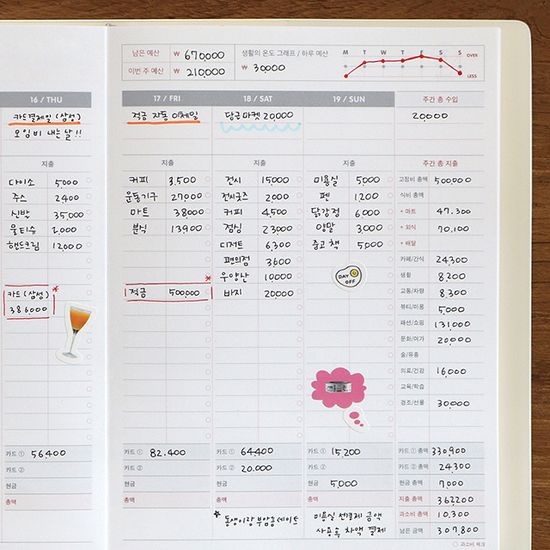 남은 예산 ₩ 670,000
이번 주 예산 ₩ 210,000
생활의 온도 그래프 / 하루 예산
₩ 30000
M T W T F S S
OVER
LESS
16 / THU
카드결제일 (삼성)
모임비 내는 날!!
지출
다이소 5000
주스 2400
신발 35,000
물티슈 2,000
핸드크림 12,000
카드 (삼성)
386000
56,400
17 / FRI
적금 자동이체일
지출
커피 3,500
운동기구 27,000
마트 38000
분식 13900
적금 500,000
카드 ① 82,400
카드 ②
현금
총액
18 / SAT
당근마켓 20,000
지출
전시 15000
전시굿즈 2000
커피 4,500
점심 23000
디저트 6,300
편의점 3600
우양산 10000
바지 20000
64,400
20,000
* 동생이랑 부암동 데이트
19 / SUN
지출
미용실 5,000
펜 1200
닭강정 6,000
양말 3000
중고 책 5,000
DAY OFF
15,200
5,000
미용실 선결제 금액
사용 후 차액 결제
주간 총 수입
20,000
주간 총 지출
고정비 총액 500,000
식비 총액
+ 마트 47,300
+ 외식 70,100
+ 배달
카페/간식 24,300
생활 8,200
교통/차량 8,300
뷰티/미용 5,000
패션/쇼핑 131,000
문화/여가 20,000
술/유흥
의료/건강 16,000
교육/학습
경조/선물 30,000
카드 ① 총액 330,900
카드 ② 총액 24300
현금 총액 7,000
지출 총액 362200
과소비 총액 10,300
남은 금액 307800
과소비 체크